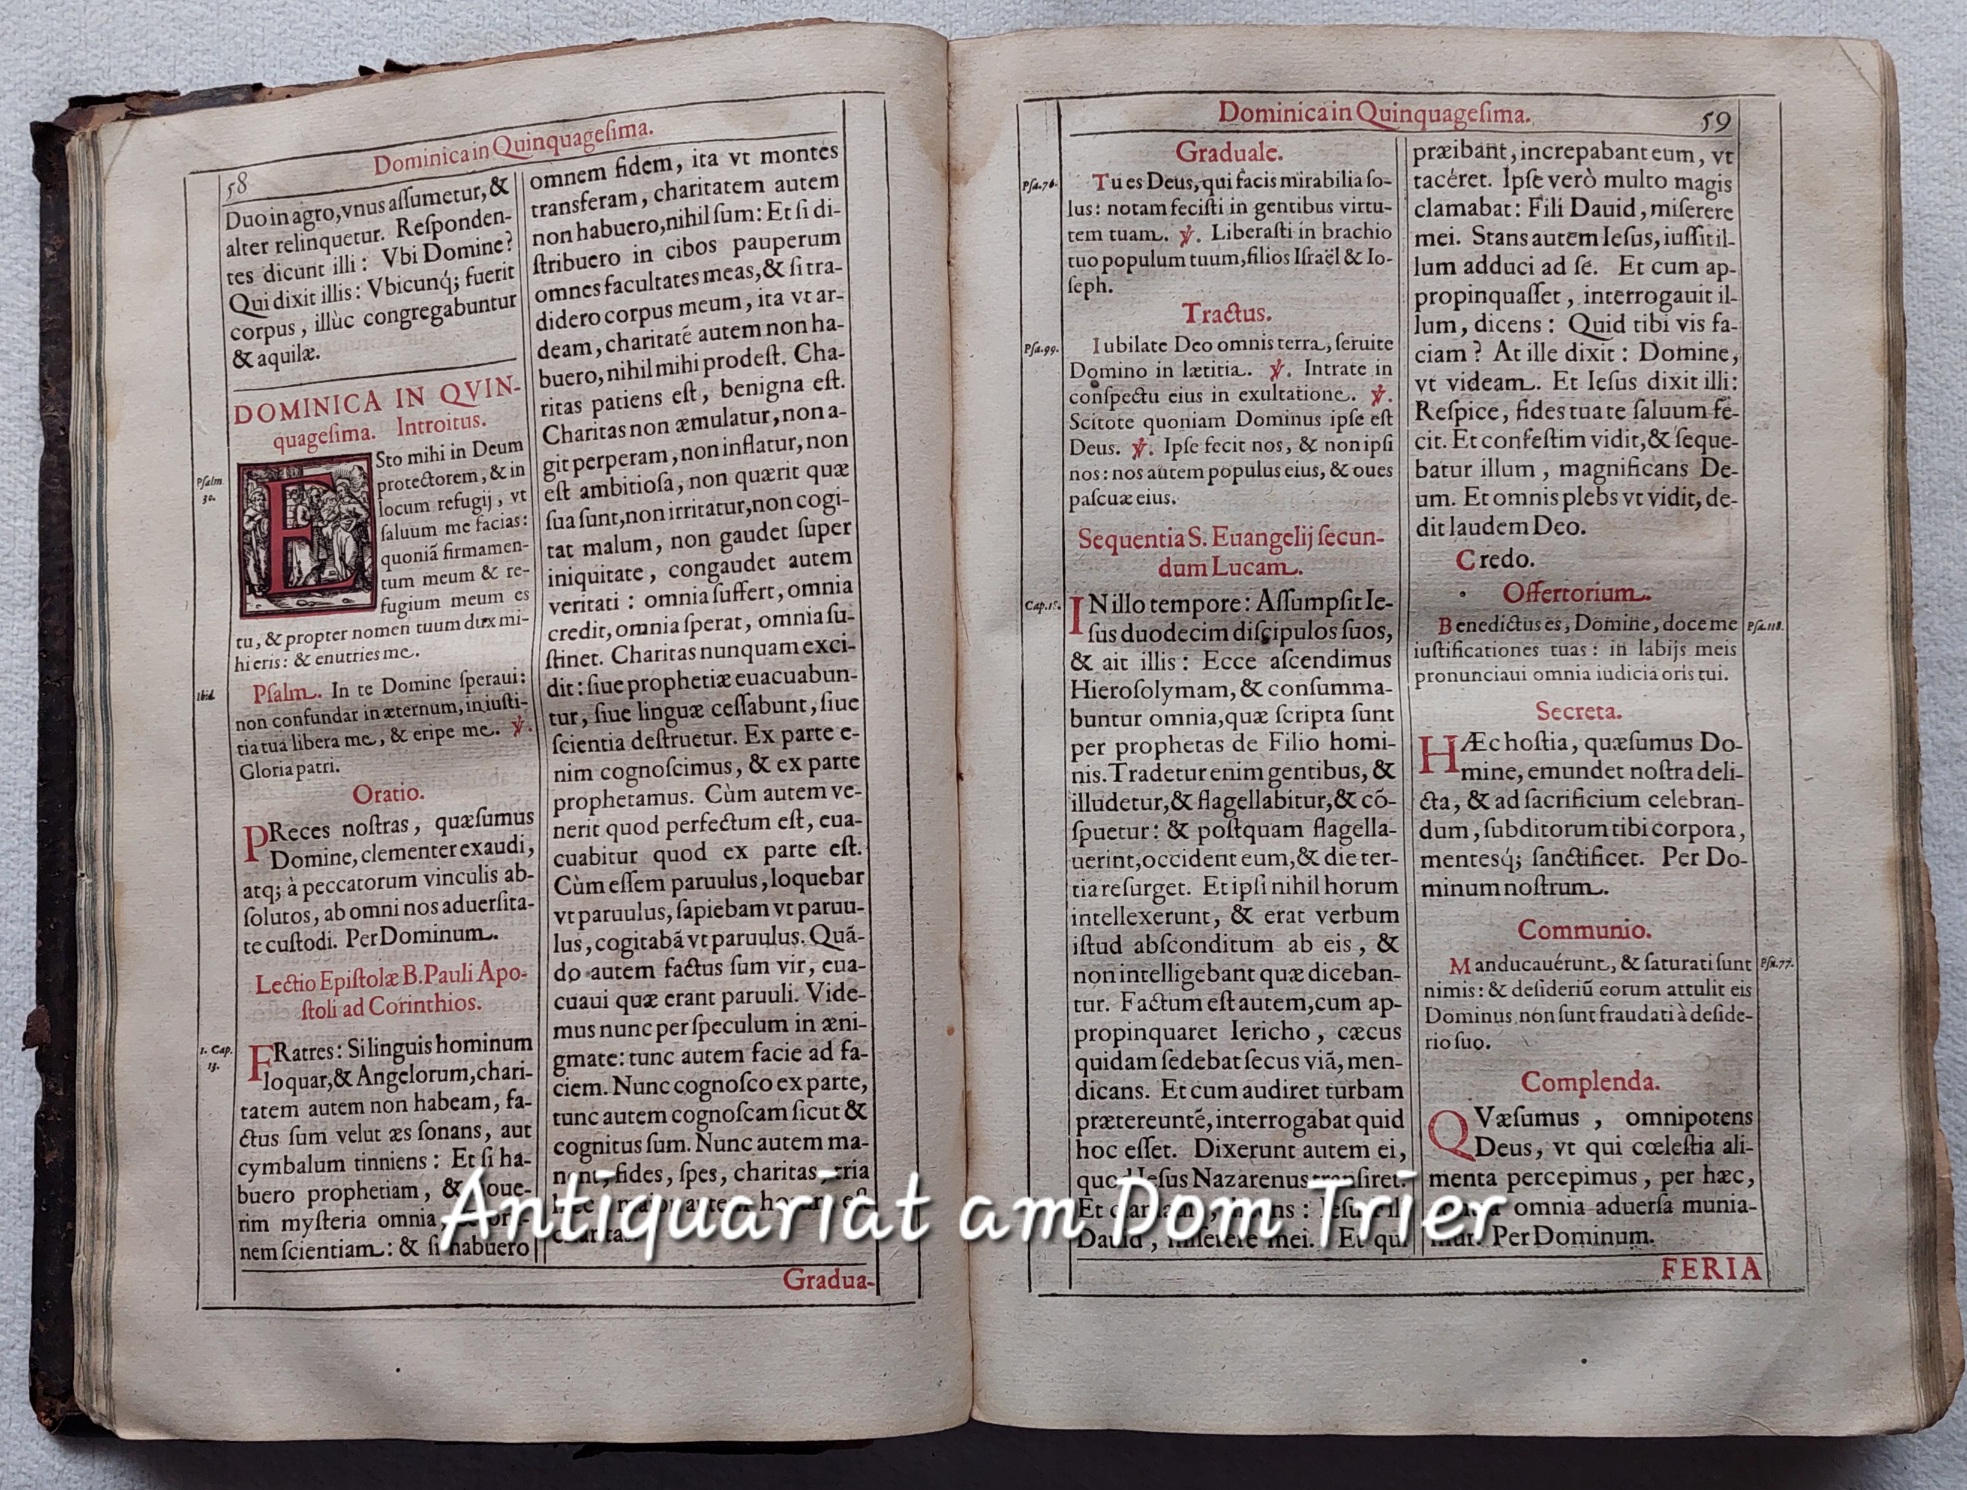 Dominica in Quinquageſima.
58
Duo in agro, vnus aſſumetur, &
alter relinquetur. Reſponden-
tes dicunt illi: Vbi Domine?
Qui dixit illis: Vbicunq́; fuerit
corpus, illùc congregabuntur
& aquilæ.
DOMINICA IN QVIN-
quageſima. Introitus.
Pſalm.
30.
ESto mihi in Deum
protectorem, & in
locum refugij, vt
ſaluum me facias:
quoniã firmamen-
tum meum & re-
fugium meum es
tu, & propter nomen tuum dux mi-
hi eris: & enutries me.
Ibid.
Pſalm. In te Domine ſperaui:
non confundar in æternum, in iuſti-
tia tua libera me, & eripe me. ℣.
Gloria patri.
Oratio.
PReces noſtras, quæſumus
Domine, clementer exaudi,
atq; à peccatorum vinculis ab-
ſolutos, ab omni nos aduerſita-
te cuſtodi. Per Dominum.
Lectio Epiſtolæ B. Pauli Apo-
ſtoli ad Corinthios.
1. Cap.
13.
FRatres: Si linguis hominum
loquar, & Angelorum, chari-
tatem autem non habeam, fa-
ctus ſum velut æs ſonans, aut
cymbalum tinniens: Et ſi ha-
buero prophetiam, & noue-
rim myſteria omnia,
nem ſcientiam: & ſi habuero
omnem fidem, ita vt montes
transferam, charitatem autem
non habuero, nihil ſum: Et ſi di-
ſtribuero in cibos pauperum
omnes facultates meas, & ſi tra-
didero corpus meum, ita vt ar-
deam, charitatẽ autem non ha-
buero, nihil mihi prodeſt. Cha-
ritas patiens eſt, benigna eſt.
Charitas non æmulatur, non a-
git perperam, non inflatur, non
eſt ambitioſa, non quærit quæ
ſua ſunt, non irritatur, non cogi-
tat malum, non gaudet ſuper
iniquitate, congaudet autem
veritati: omnia ſuffert, omnia
credit, omnia ſperat, omnia ſu-
ſtinet. Charitas nunquam exci-
dit: ſiue prophetiæ euacuabun-
tur, ſiue linguæ ceſſabunt, ſiue
ſcientia deſtruetur. Ex parte e-
nim cognoſcimus, & ex parte
prophetamus. Cùm autem ve-
nerit quod perfectum eſt, eua-
cuabitur quod ex parte eſt.
Cùm eſſem paruulus, loquebar
vt paruulus, ſapiebam vt paruu-
lus, cogitabã vt paruulus. Quã-
do autem factus ſum vir, eua-
cuaui quæ erant paruuli. Vide-
mus nunc per ſpeculum in æni-
gmate: tunc autem facie ad fa-
ciem. Nunc cognoſco ex parte,
tunc autem cognoſcam ſicut &
cognitus ſum. Nunc autem ma-
nent, fides, ſpes, charitas, tria
hæc: maior autem horum eſt
charitas.
Gradua-
Dominica in Quinquageſima.
59
Graduale.
Pſa. 76.
Tu es Deus, qui facis mirabilia ſo-
lus: notam feciſti in gentibus virtu-
tem tuam. ℣. Liberaſti in brachio
tuo populum tuum, filios Iſraël & Io-
ſeph.
Tractus.
Pſa. 99.
Iubilate Deo omnis terra, ſeruite
Domino in lætitia. ℣. Intrate in
conſpectu eius in exultatione. ℣.
Scitote quoniam Dominus ipſe eſt
Deus. ℣. Ipſe fecit nos, & non ipſi
nos: nos autem populus eius, & oues
paſcuæ eius.
Sequentia S. Euangelij ſecun-
dum Lucam.
Cap. 18.
IN illo tempore: Aſſumpſit Ie-
ſus duodecim diſcipulos ſuos,
& ait illis: Ecce aſcendimus
Hieroſolymam, & conſumma-
buntur omnia, quæ ſcripta ſunt
per prophetas de Filio homi-
nis. Tradetur enim gentibus, &
illudetur, & flagellabitur, & cõ-
ſpuetur: & poſtquam flagella-
uerint, occident eum, & die ter-
tia reſurget. Et ipſi nihil horum
intellexerunt, & erat verbum
iſtud abſconditum ab eis, &
non intelligebant quæ diceban-
tur. Factum eſt autem, cum ap-
propinquaret Iericho, cæcus
quidam ſedebat ſecus viã, men-
dicans. Et cum audiret turbam
prætereuntẽ, interrogabat quid
hoc eſſet. Dixerunt autem ei,
quod Ieſus Nazarenus tranſiret.
Et clamauit, dicens: Ieſu fili
Dauid, miſerere mei. Et qui
præibant, increpabant eum, vt
tacéret. Ipſe verò multo magis
clamabat: Fili Dauid, miſerere
mei. Stans autem Ieſus, iuſſit il-
lum adduci ad ſe. Et cum ap-
propinquaſſet, interrogauit il-
lum, dicens: Quid tibi vis fa-
ciam? At ille dixit: Domine,
vt videam. Et Ieſus dixit illi:
Reſpice, fides tua te ſaluum fe-
cit. Et confeſtim vidit, & ſeque-
batur illum, magnificans De-
um. Et omnis plebs vt vidit, de-
dit laudem Deo.
Credo.
Offertorium.
Benedictus es, Domine, doce me
Pſa. 118.
iuſtificationes tuas: in labijs meis
pronunciaui omnia iudicia oris tui.
Secreta.
HÆc hoſtia, quæſumus Do-
mine, emundet noſtra deli-
cta, & ad ſacrificium celebran-
dum, ſubditorum tibi corpora,
menteſq́; ſanctificet. Per Do-
minum noſtrum.
Communio.
Manducauérunt, & ſaturati ſunt
Pſa. 77.
nimis: & deſideriũ eorum attulit eis
Dominus, non ſunt fraudati à deſide-
rio ſuo.
Complenda.
QVæſumus, omnipotens
Deus, vt qui cœleſtia ali-
menta percepimus, per hæc,
omnia aduerſa munia-
mur. Per Dominum.
FERIA
Antiquariat am Dom Trier